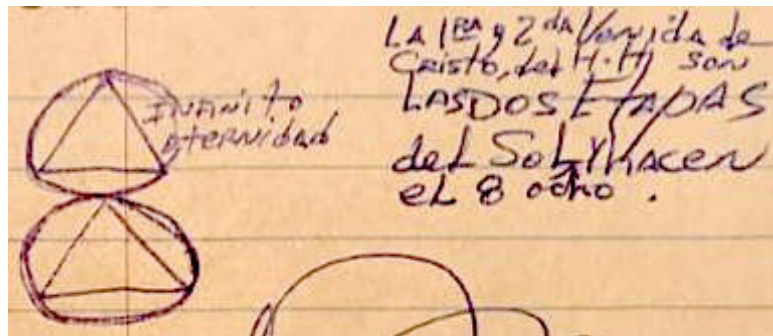 INFINITO
ETERNIDAD
LA 1RA y 2da Venida de
Cristo, del H.H, son
LAS DOS ETAPAS
del SoL Y HACEN
eL 8 ocho.